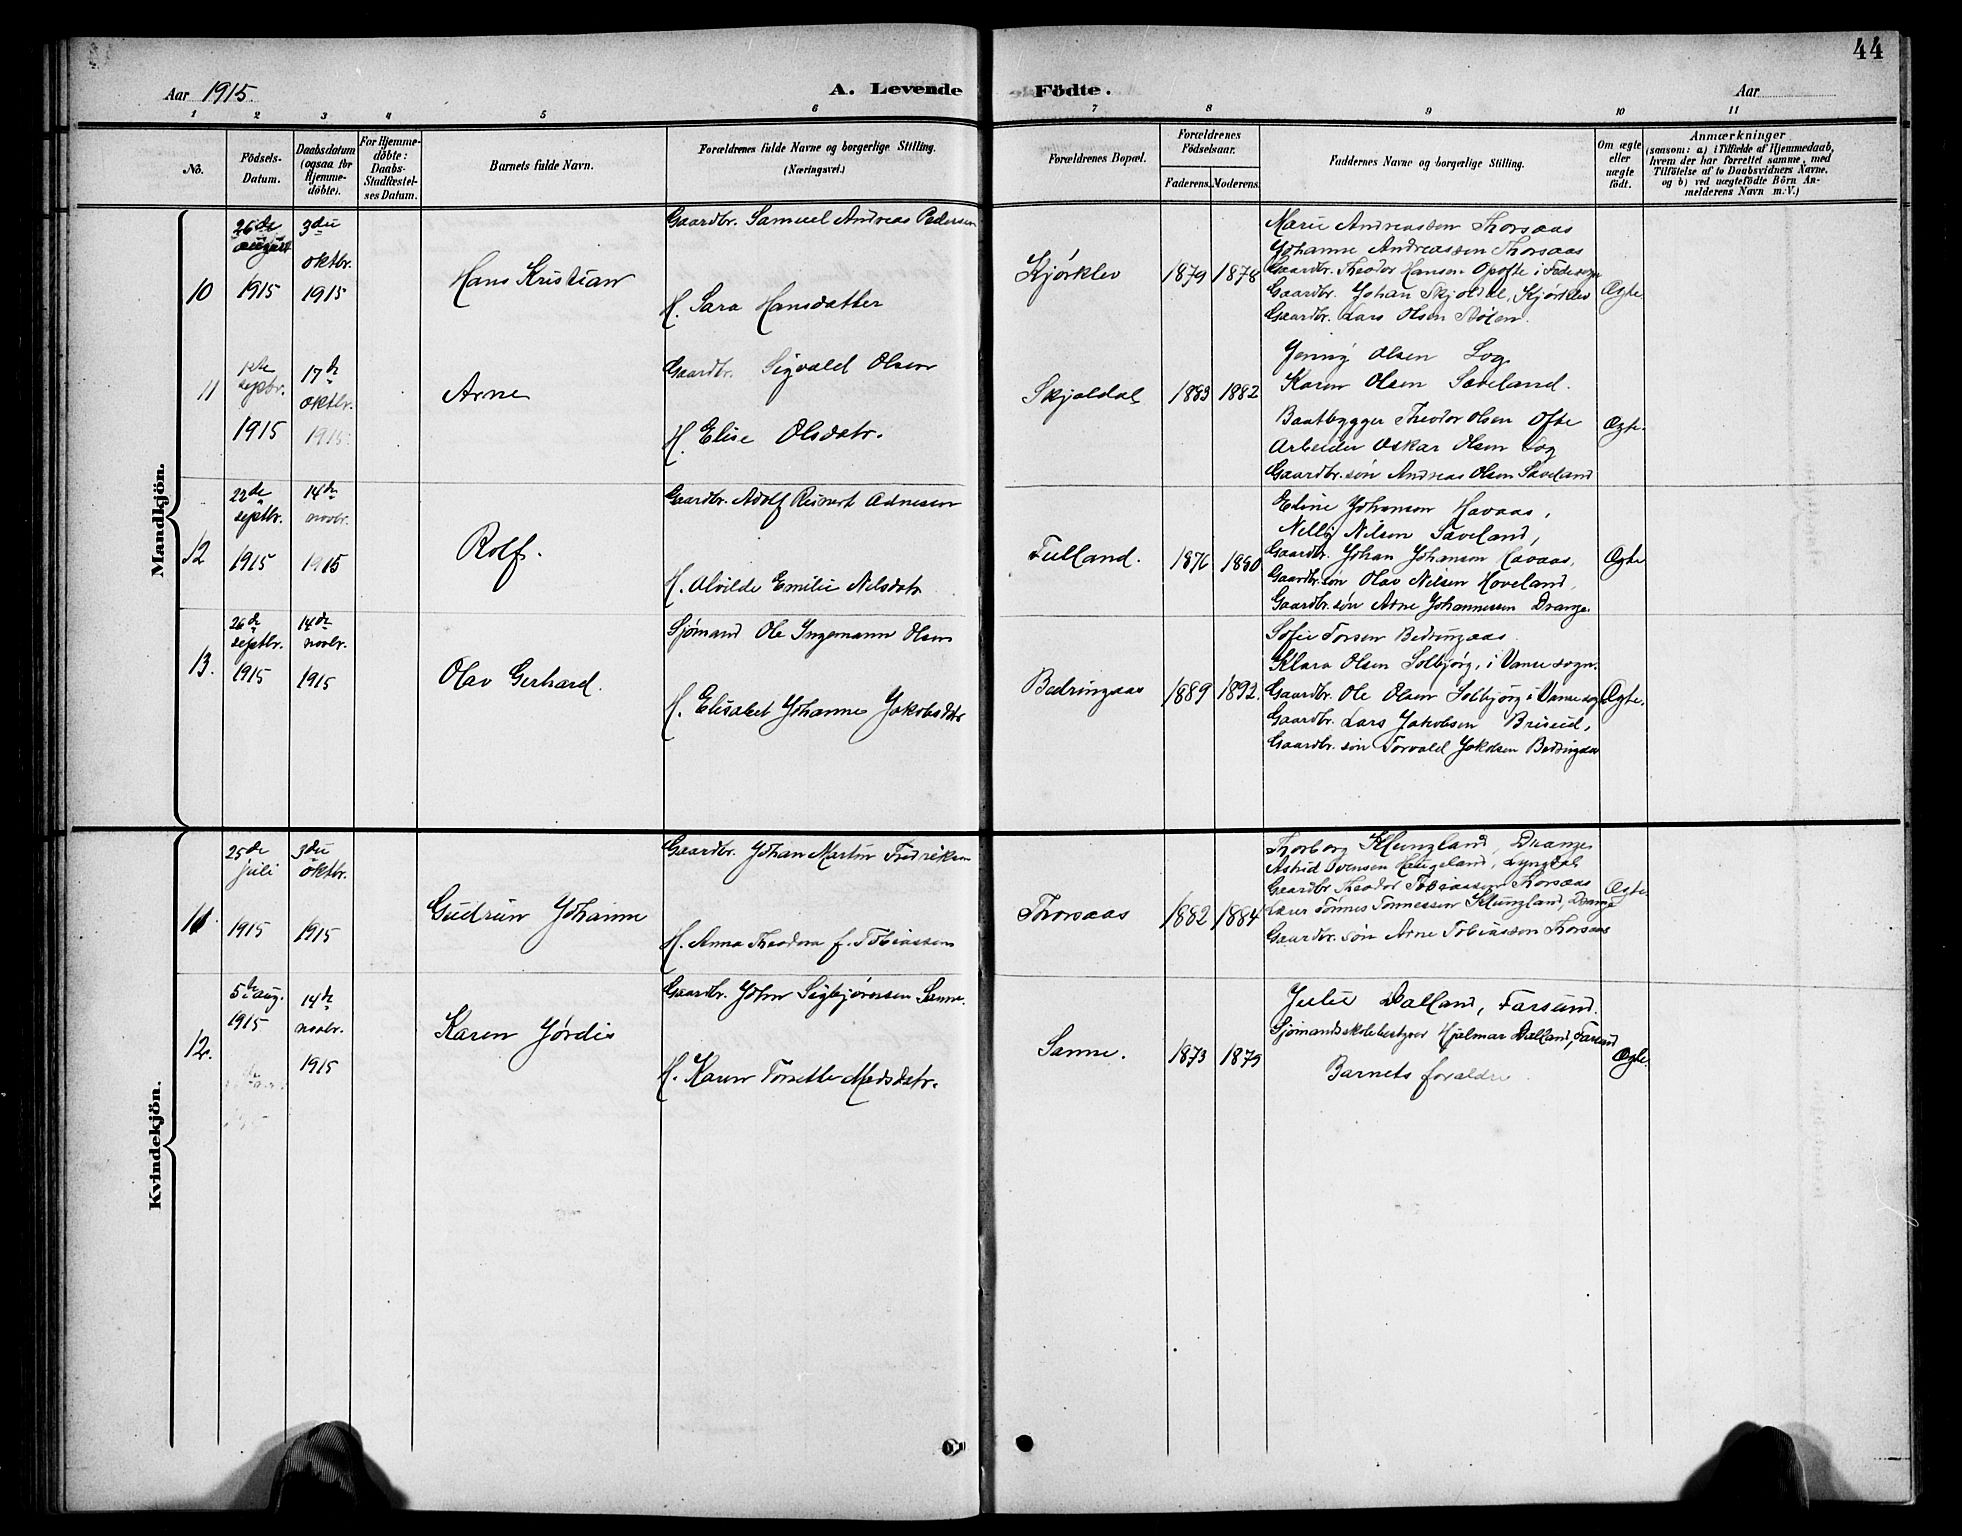 44
Aar 1915.
A. Levende Födte.
Aar
1 2 3 4 5 6 7 8 9 10 11
No.
Födsels-
Datum.
Daabsdatum
(ogsaa for
Hjemme-
döbte).
For Hjemme-
döbte:
Daabs-
Stadfæstel-
ses Datum.
Barnets fulde Navn.
Forældrenes fulde Navne og borgerlige Stilling.
(Næringsvei.)
Forældrenes Bopæl.
Forældrenes
Födselsaar.
Faderens. Moderens.
Faddernes Navne og borgerlige Stilling.
Om ægte
eller
uægte
födt.
Anmærkninger
(saasom: a) i Tilfælde af Hjemmedaab,
hvem der har forrettet samme, med
Tilföielse af to Daabsvidners Navne.
og b) ved uægtefödte Börn An-
melderens Navn m. V.)
Mandkjön.
10
26de
august
1915
3die
oktbr.
1915
Hans Kristian
Gaardbr. Samuel Andreas Pedersen
H. Sara Hansdatter
Kjørklev
1879 1878
Marie Andreassen Thorsaas
Johanne Andreassen Thorsaas
Gaardbr. Theodor Hansen Opofte i Fedesogn
Gaardbr. Johan Skjoldal, Kjørklev
Gaardbr. Lars Olsen
Ægte.
11
septbr.
1915
17de
oktbr.
1915
Arne
Gaardbr. Sigvald Olsen
H. Elise Olsdatr.
Skjoldal
1883 1882
Jenny Olsen Log
Karen Olsen Saveland.
Baatbygger Theodor Olsen Ofte
Arbeider Oskar Olsen Log
Gaardbr. søn Andreas Olsen Saveland
Ægte.
12
22de
septbr.
1915
14de
novbr.
1915
Rolf.
Gaardbr. Adolf Reinert Adnesen
H. Alvilde Emilie Nelsdatr
Tulland.
1876 1880
Edine Johansen Havaas,
Nelly Nilsen Saveland,
Gaardbr. Johan Johansen Havaas,
Gaardbr. søn Olav Nilsen Hoveland,
Gaardbr. søn Arne Johannessen Drange
Ægte
13.
26de
septbr.
1915
14de
novbr.
1915
Olav Gerhard.
Sjømand Ole Ingemann Olsen
H. Elisabet Johanne Jakobsdatr
Bedringaas
1889 1892.
Sofie Torsen Bedringaas.
Klara Olsen Solbjørg, i Vanse sogn.
Gaardbr. Ole Olsen Solbjørg i Vanse sogn
Gaardbr. Lars Jakobsen Briseid,
Gaardbr. søn Torvald Jakobsen Bedringaas
Ægte.
Kvindekjön.
11.
25de
juli
1915
3die
oktbr.
1915
Gudrun Johanne
Gaardbr. Johan Martin Fredriksen
H. Anna Theodora f. Tobiassen
Thorsaas
1882 1884
Thorborg Klungland, Drange
Astrid Svensen Haugeland, Lyngdal
Gaardbr Theodor Tobiassen Thorsaas
Lærer Tönnes Tönnessen Klungland, Drange
Gaardbr. søn Arne Tobiassen Thorsaas
Ægte
12.
5te aug.
1915
14de
novbr.
1915
Karen Jørdis
Gaardbr. John Sigbjørnsen Sanne.
H. Karen Torsette Madsdatr.
Sanne.
1873 1879
Julie Dalland, Farsund.
Sjømandsskolebestyrer Hjalmar Dalland, Farsund
Barnets forældre.
Ægte.